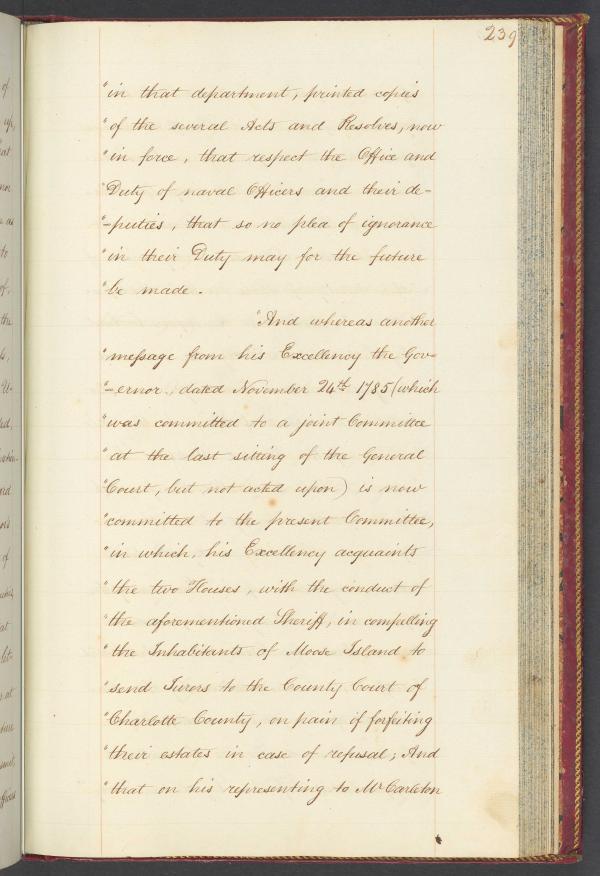 239
"in that department, printed copies
"of the several Acts and Resolves, now
"in force, that respect the Office and
"Duty of naval Officers and their de-
"-puties, that so no plea of ignorance
"in their Duty may for the future
"be made.
"And whereas another
"message from his Excellency the Gov-
"-ernor, dated November 24th 1785 (which
"was committed to a joint Committee
"at the last sitting of the General
"Court, but not acted upon) is now
"committed to the present Committee,
"in which, his Excellency acquaints
"the two Houses, with the conduct of
"the aforementioned Sheriff, in compelling
"the Inhabitants of Moose Island to
"send Jurors to the County Court of
"Charlotte County, on pain if forfeiting
"their estates in case of refusal; And
"that on his representing to Mr Carleton